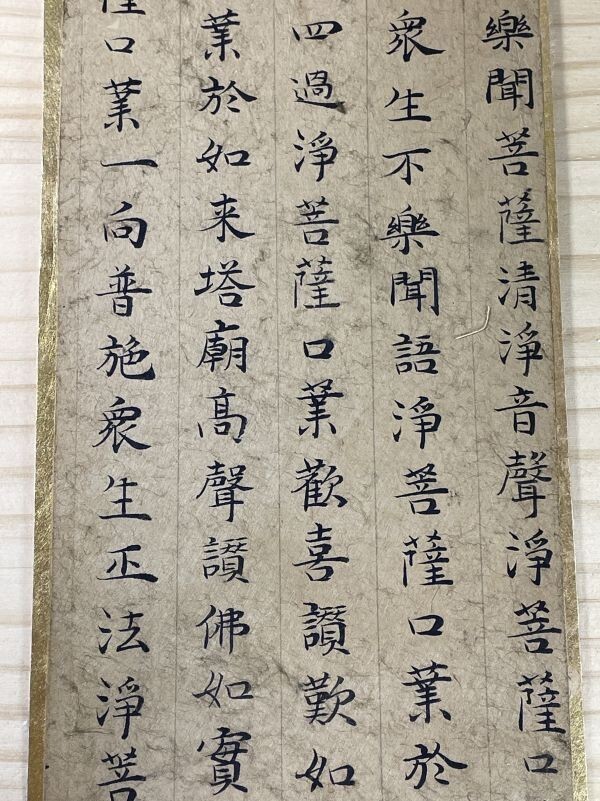 樂聞菩薩清淨音聲淨菩薩口
衆生不樂聞語淨菩薩口業於
四過淨菩薩口業歡喜讃歎如
業於如来塔廟髙聲讃佛如實
薩口業一向普施衆生正法淨菩